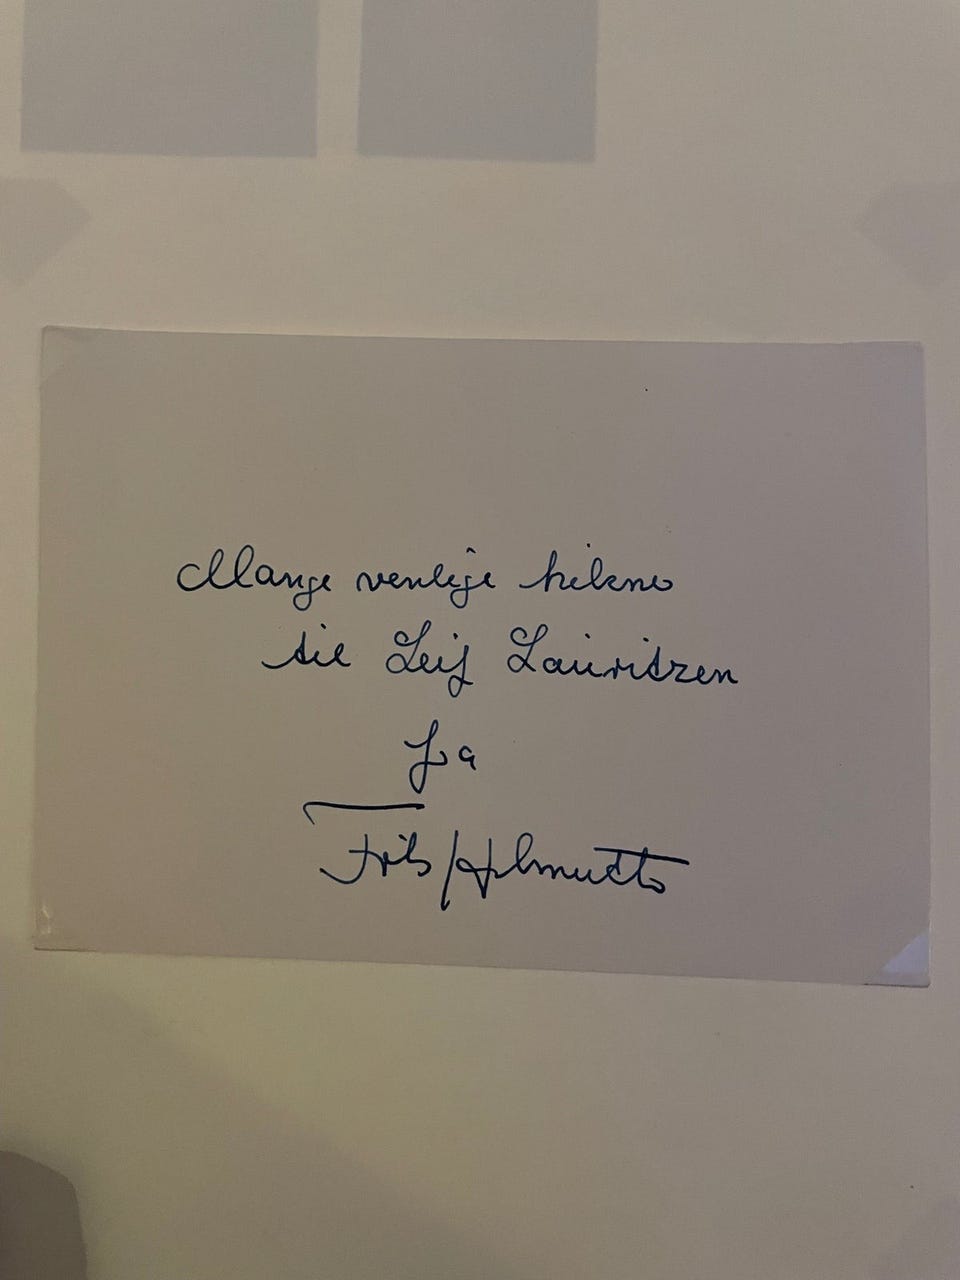 Mange venlige hilsner
til Leif Lauritzen
fra
Frits Helmuth